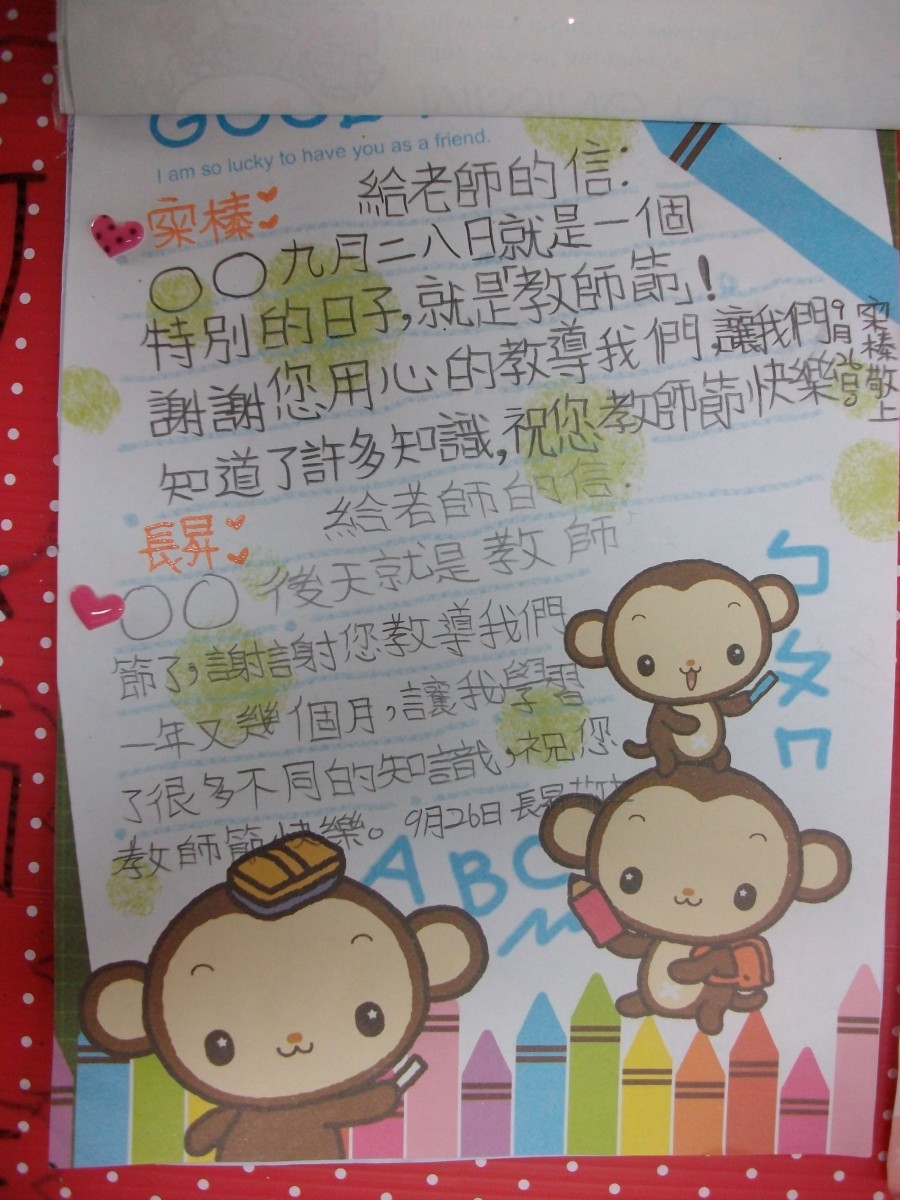 GOOD
I am so lucky to have you as a friend.
給老師的信：
寀榛
○○九月二八日就是一個
特別的日子,就是「教師節」!
謝謝您用心的教導我們,讓我們
知道了許多知識,祝您教師節快樂。
9月26日
寀榛敬上
給老師的信：
長昇
○○後天就是教師
節了,謝謝您教導我們
一年又幾個月,讓我學習
了很多不同的知識,祝您
教師節快樂。9月26日 長昇
ㄅ
ㄆ
ㄇ
ABC